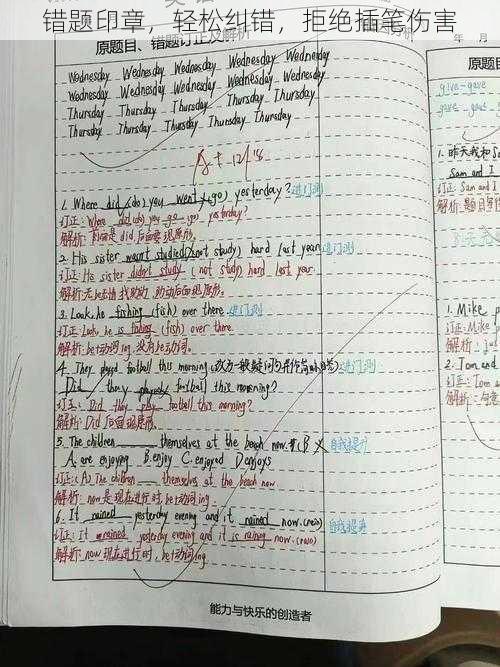 错题印章，轻松纠错，拒绝插笔伤害
原题目、错题订正及解析
年 月
Wednesday Wednesday Wednesday Wednesday Wednesday
Wednesday Wednesday Wednesday Wednesday Wednesday
Thursday Thursday Thursday Thursday Thursday
Thursday Thursday Thursday Thursday Thursday
A+ 12/18
1. Where did (do) you went (go) yesterday? 进门测
订正: Where did (do) you go (go) yesterday?
解析: did 后面要现原形.
2. His sister wasn't studied (not study) hard last year. 进门测
订正: His sister didn't study (not study) hard last year.
解析: 无be动词找助动, 助动后面现原形.
3. Look, he fishing (fish) over there. 进门测
订正: Look, he is fishing (fish) over there.
解析: be动词ing, 没有be动词.
4. They played football this morning. (改为一般疑问句并作简略回答) 进门测
Did they played football this morning?
订正: Did they play football this morning?
解析: Did 后面现原形.
5. The children ______ themselves at the beach now. (B ✗ 自我提升
A. are enjoying B. enjoy C. enjoyed D. enjoys
订正: (A) The children ____ themselves at the beach now
解析: now 是现在进行时, be动词ing.
6. It rained yesterday evening and it rained now. (rain) 自我提升
订正: It rained yesterday evening and it is raining now. (rain)
解析: now 现在进行时, be动词ing
能力与快乐的创造者
give-gave
1. 昨天我和Sa
Sam and I
订正: Sam and I
解析: 题目
1. Mike
订正: Mike
解析:
2. Tom and
订正: Tom and
解析: